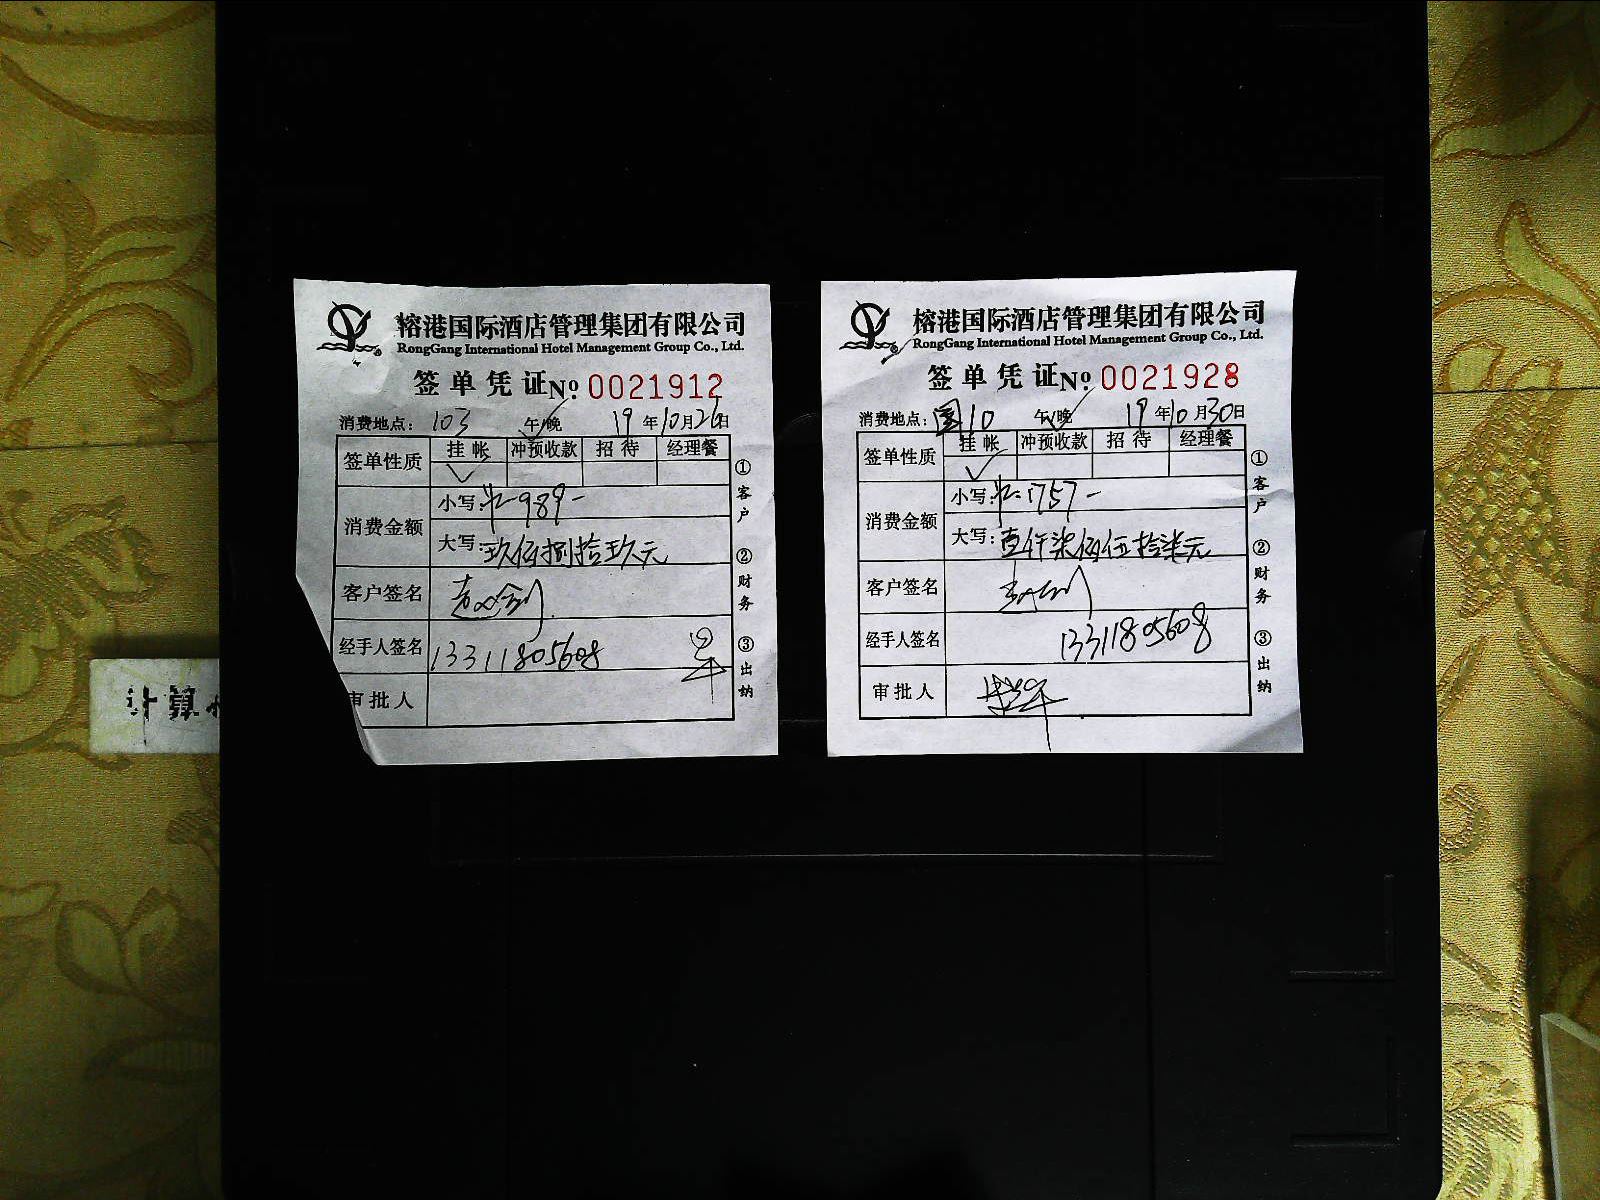 榕港国际酒店管理集团有限公司
RongGang International Hotel Management Group Co., Ltd.
签单凭证 № 0021912
消费地点：103 午/晚 19年10月26日
签单性质 挂帐 冲预收款 招待 经理餐
✓
消费金额 小写：¥-989-
大写：玖佰捌拾玖元
客户签名
经手人签名 13311805608
审批人
①客户 ②财务 ③出纳
榕港国际酒店管理集团有限公司
RongGang International Hotel Management Group Co., Ltd.
签单凭证 № 0021928
消费地点：国10 午/晚 19年10月30日
签单性质 挂帐 冲预收款 招待 经理餐
✓
消费金额 小写：¥:1757-
大写：壹仟柒佰伍拾柒元
客户签名
经手人签名 13311805608
审批人
①客户 ②财务 ③出纳
计算